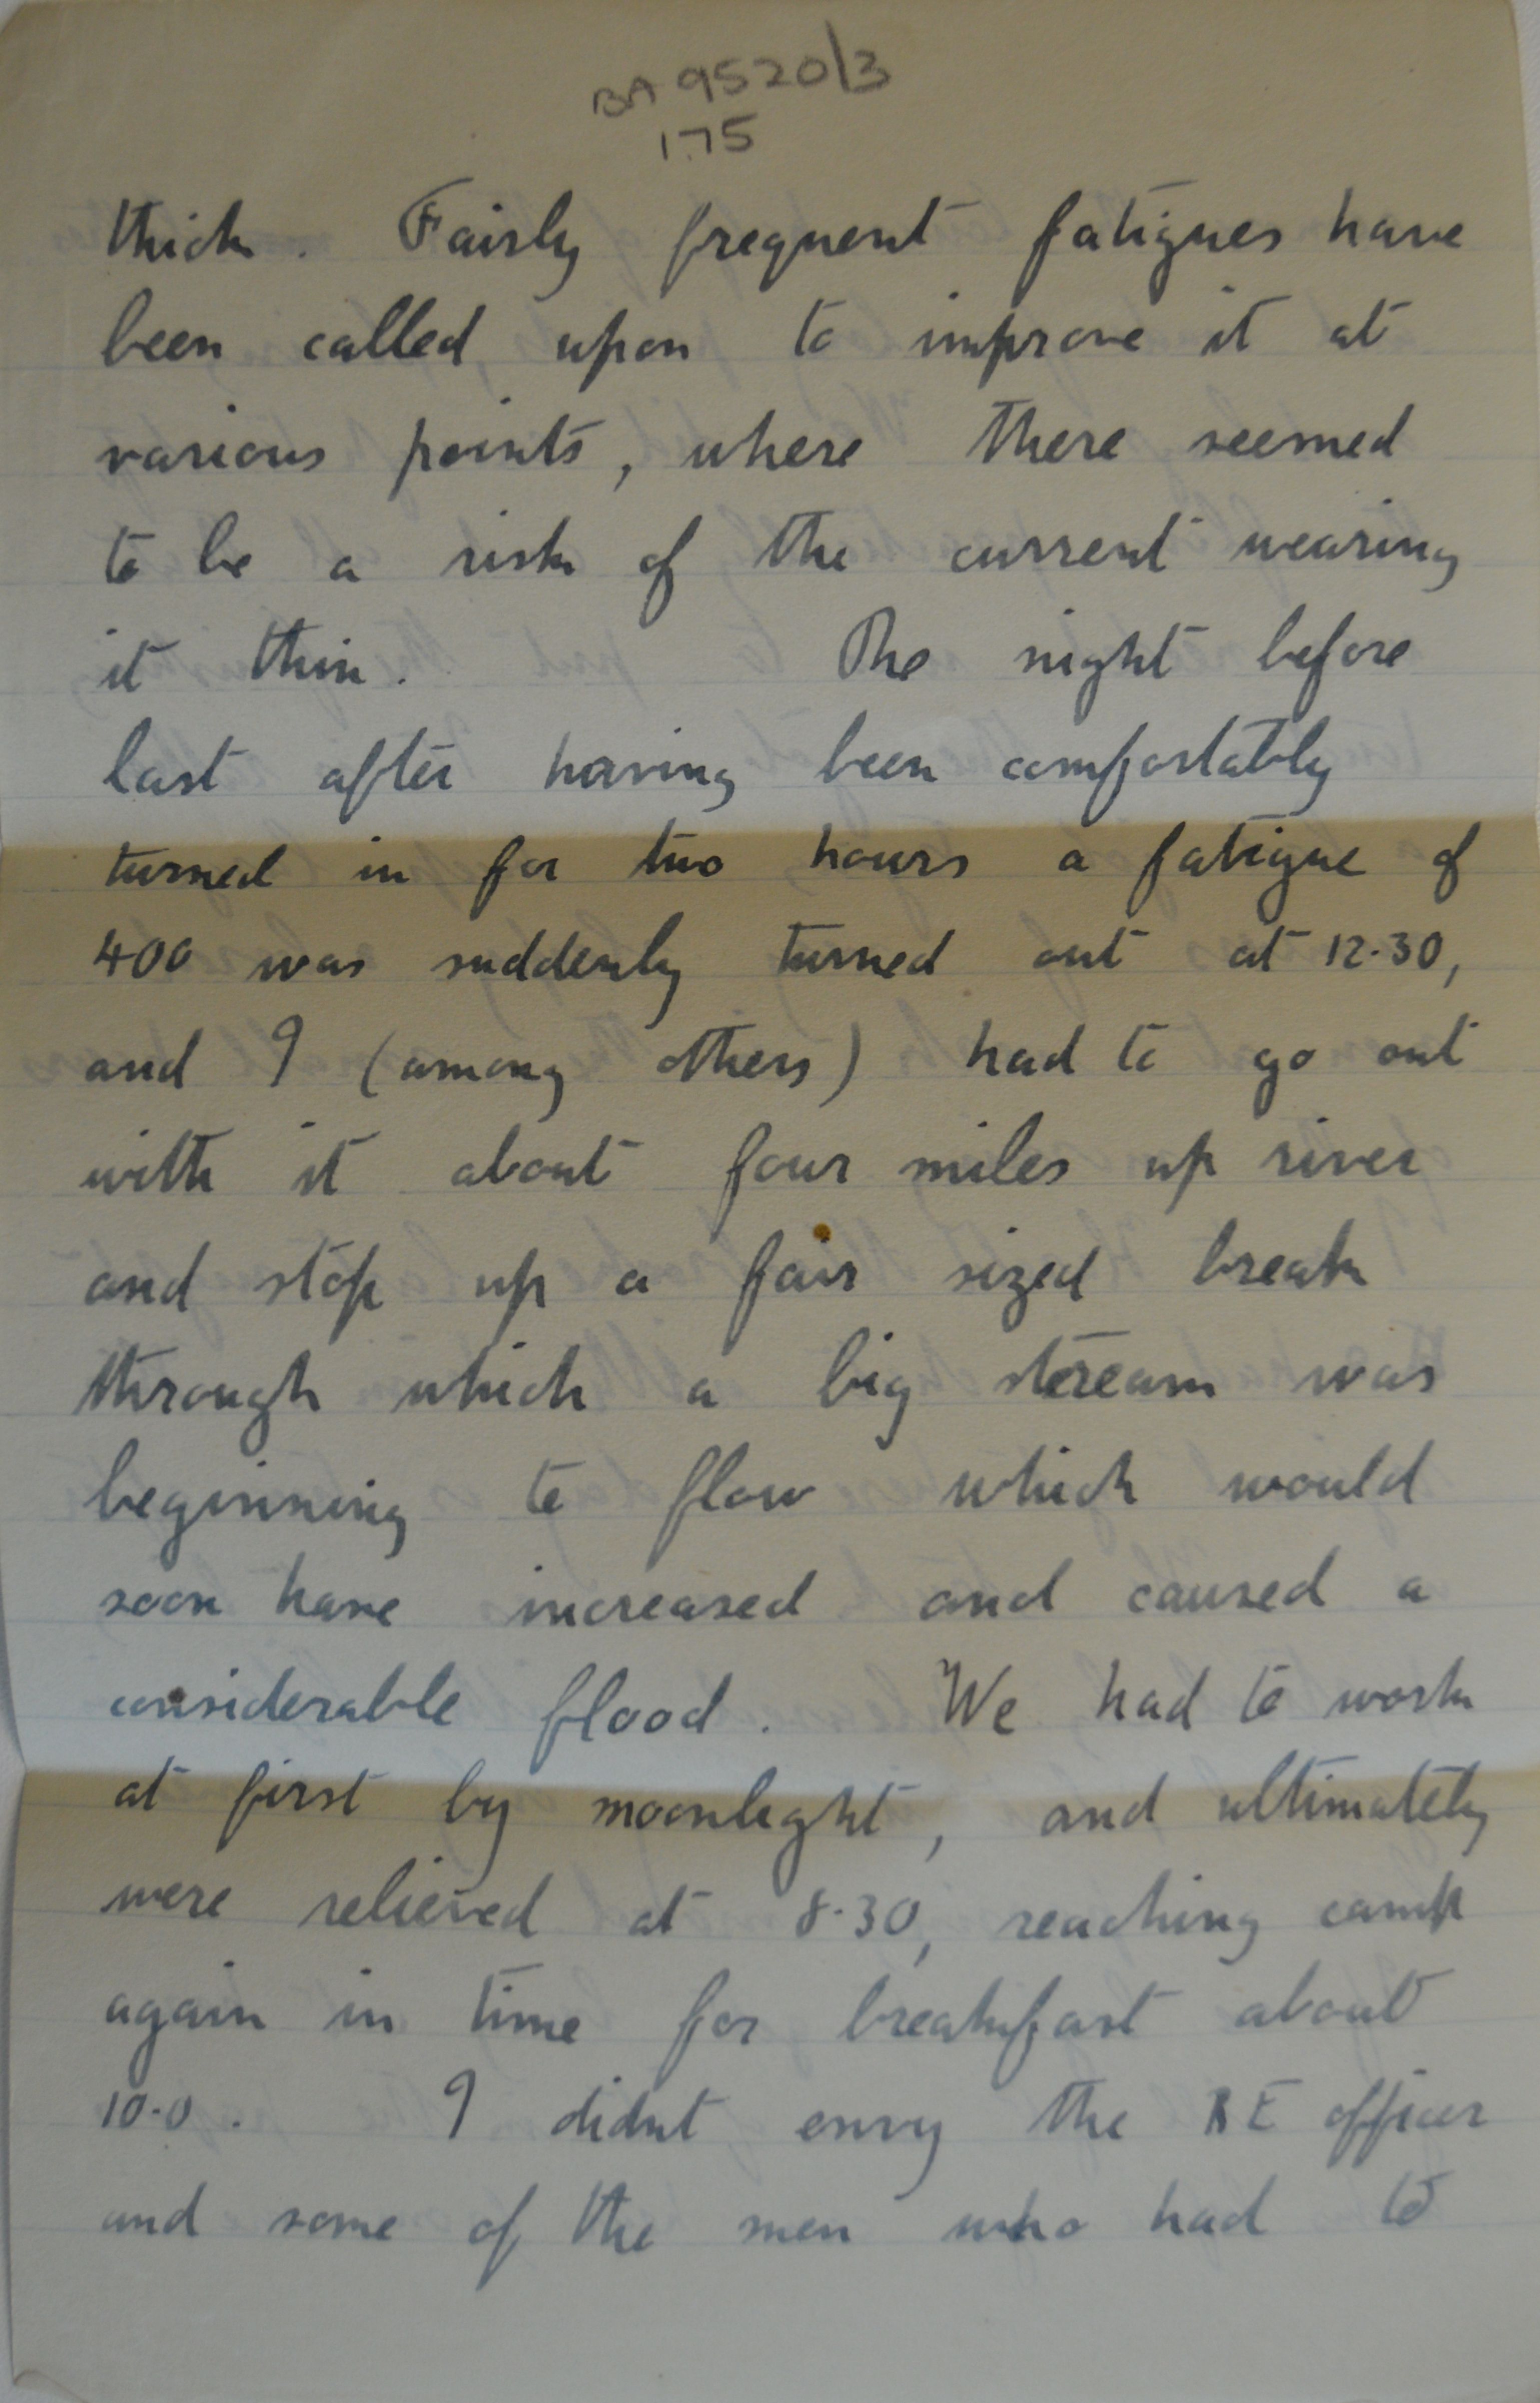 BA 9520/3
175
thick. Fairly frequent fatigues have
been called upon to improve it at
various points, where there seemed
to be a risk of the current wearing
it thin. The night before
last after having been comfortably
turned in for two hours a fatigue of
400 was suddenly turned out at 12.30,
and I (among others) had to go out
with it about four miles up river
and stop up a fair sized break
through which a big stream was
beginning to flow which would
soon have increased and caused a
considerable flood. We had to work
at first by moonlight, and ultimately
were relieved at 8.30, reaching camp
again in time for breakfast about
10.0. I didnt envy the RE officer
and some of the men who had to